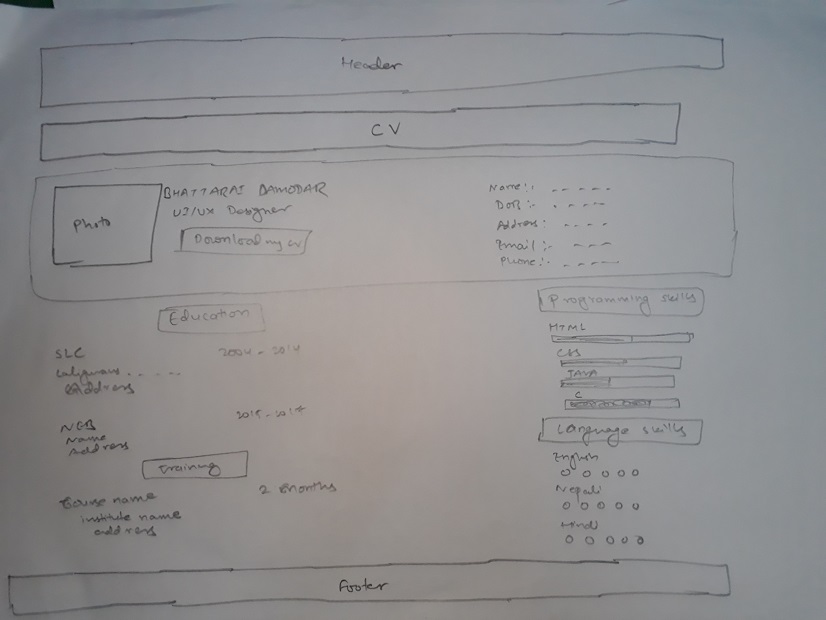 Header
CV
Photo
BHATTARAI DAMODAR
UI/UX Designer
Download my cv
Name:- - - - - -
DOB:- - - - - -
Address: - - - -
Email :- - - -
Phone:- - - - -
Education
SLC 2004 - 2014
Address
NEB 2015-2017
Name
Address
Training
Course name 2 months
institute name
address
Programming skills
HTML
CSS
JAVA
C
Language skills
English
Nepali
Hindi
Footer